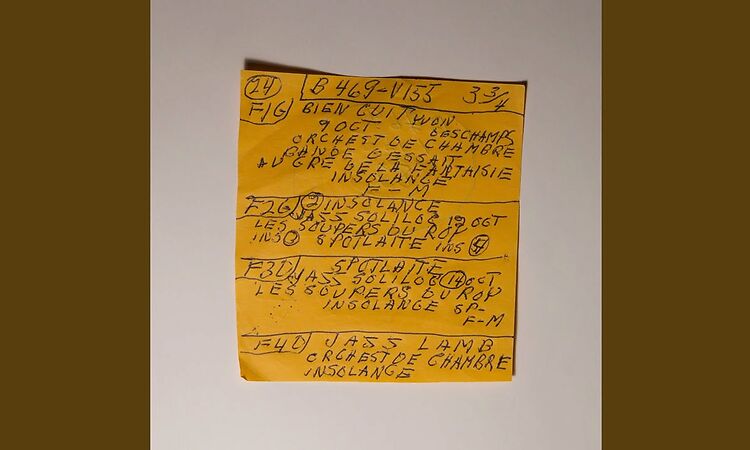 24 B 469-V155 3 3/4
F1G BIEN CUIT YVON
9 OCT DESCHAMPS
ORCHEST DE CHAMBRE
BANDE DESSAIT
AU GRE DE LA FANTAISIE
INSOLANGE
F-M
F2G INSOLANGE
JASS SOLILOG 19 OCT
LES SOUPERS DU ROY
INS SPOTLAITE INS
F3D SPOTLAITE
JASS SOLILOG 14 OCT
LES SOUPERS DU ROY
INSOLANGE SP-
F-M
F4D JASS LAMB
ORCHEST DE CHAMBRE
INSOLANGE